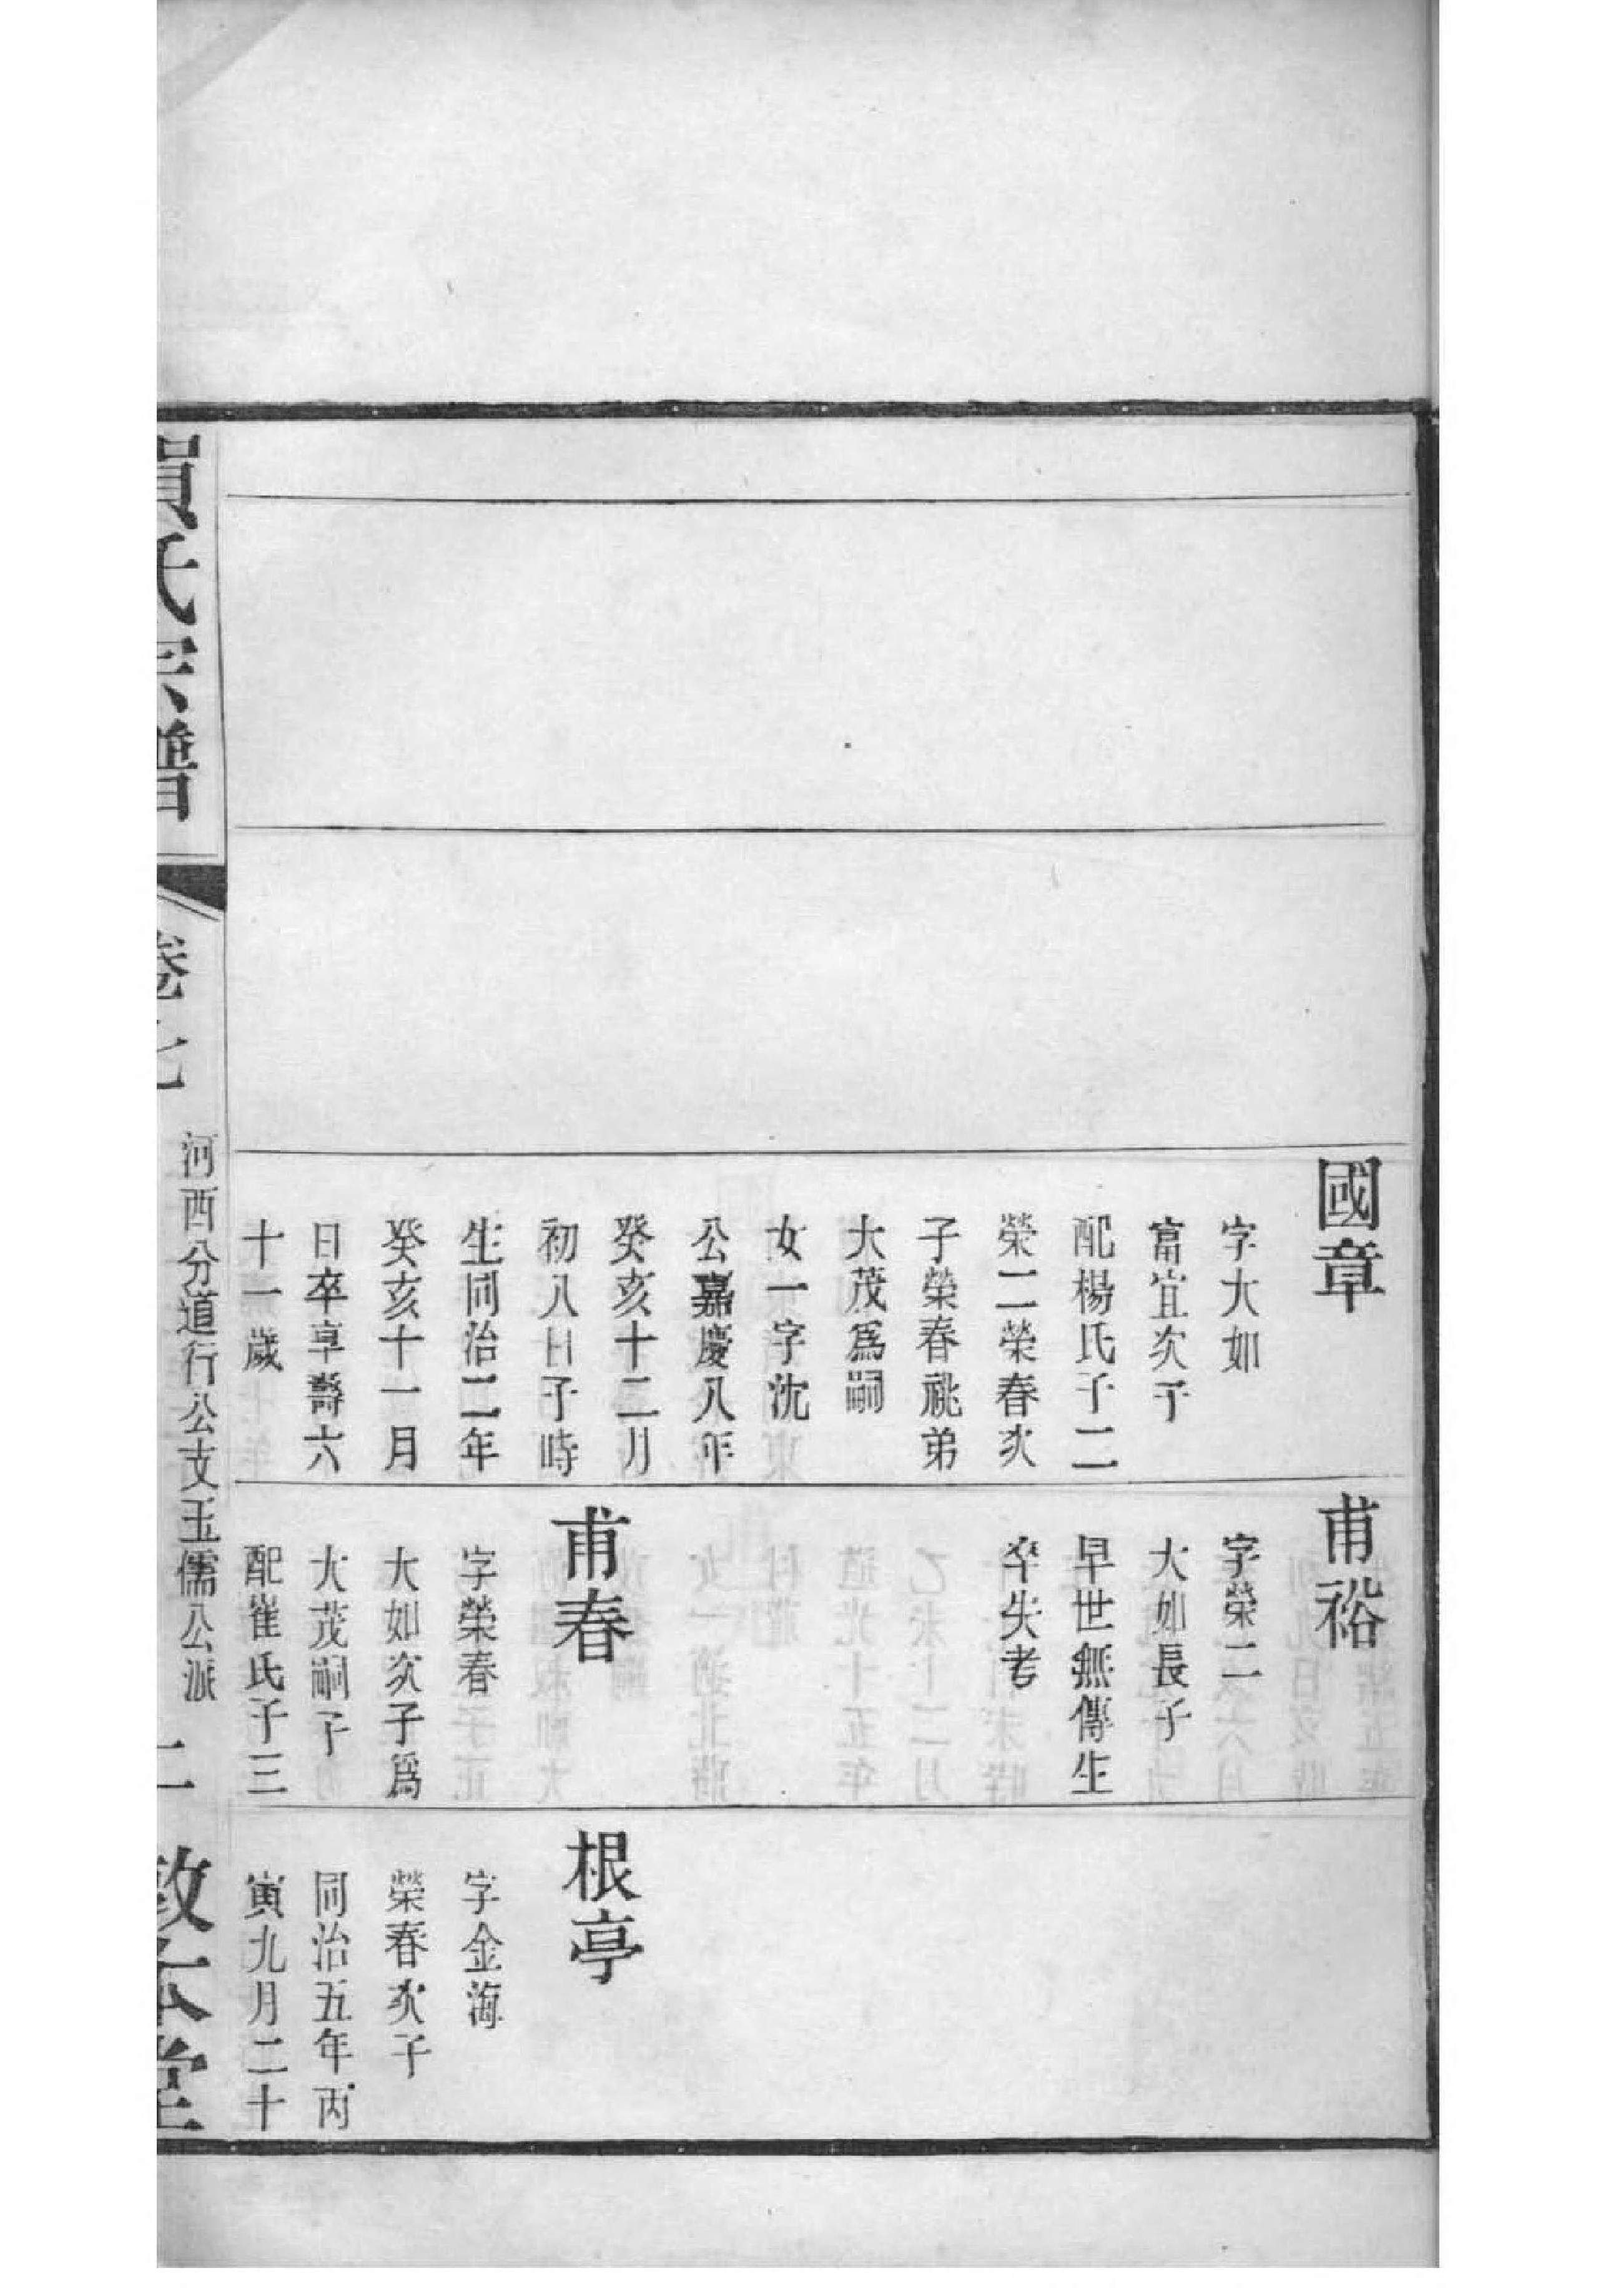 國章
字大如
富宜次子
配楊氏子二
榮二榮春次
子榮春祧弟
大茂爲嗣
女一字沈
公嘉慶八年
癸亥十二月
初八日子時
生同治二年
癸亥十一月
日卒享壽六
十一歲
甫裕
字榮二
大如長子
早世無傳生
卒失考
甫春
字榮春
大如次子爲
大茂嗣子
配崔氏子三
根亭
字金海
榮春次子
同治五年丙
寅九月二十
氏宗譜
卷七
河西分道行公支玉儒公派
二
堂